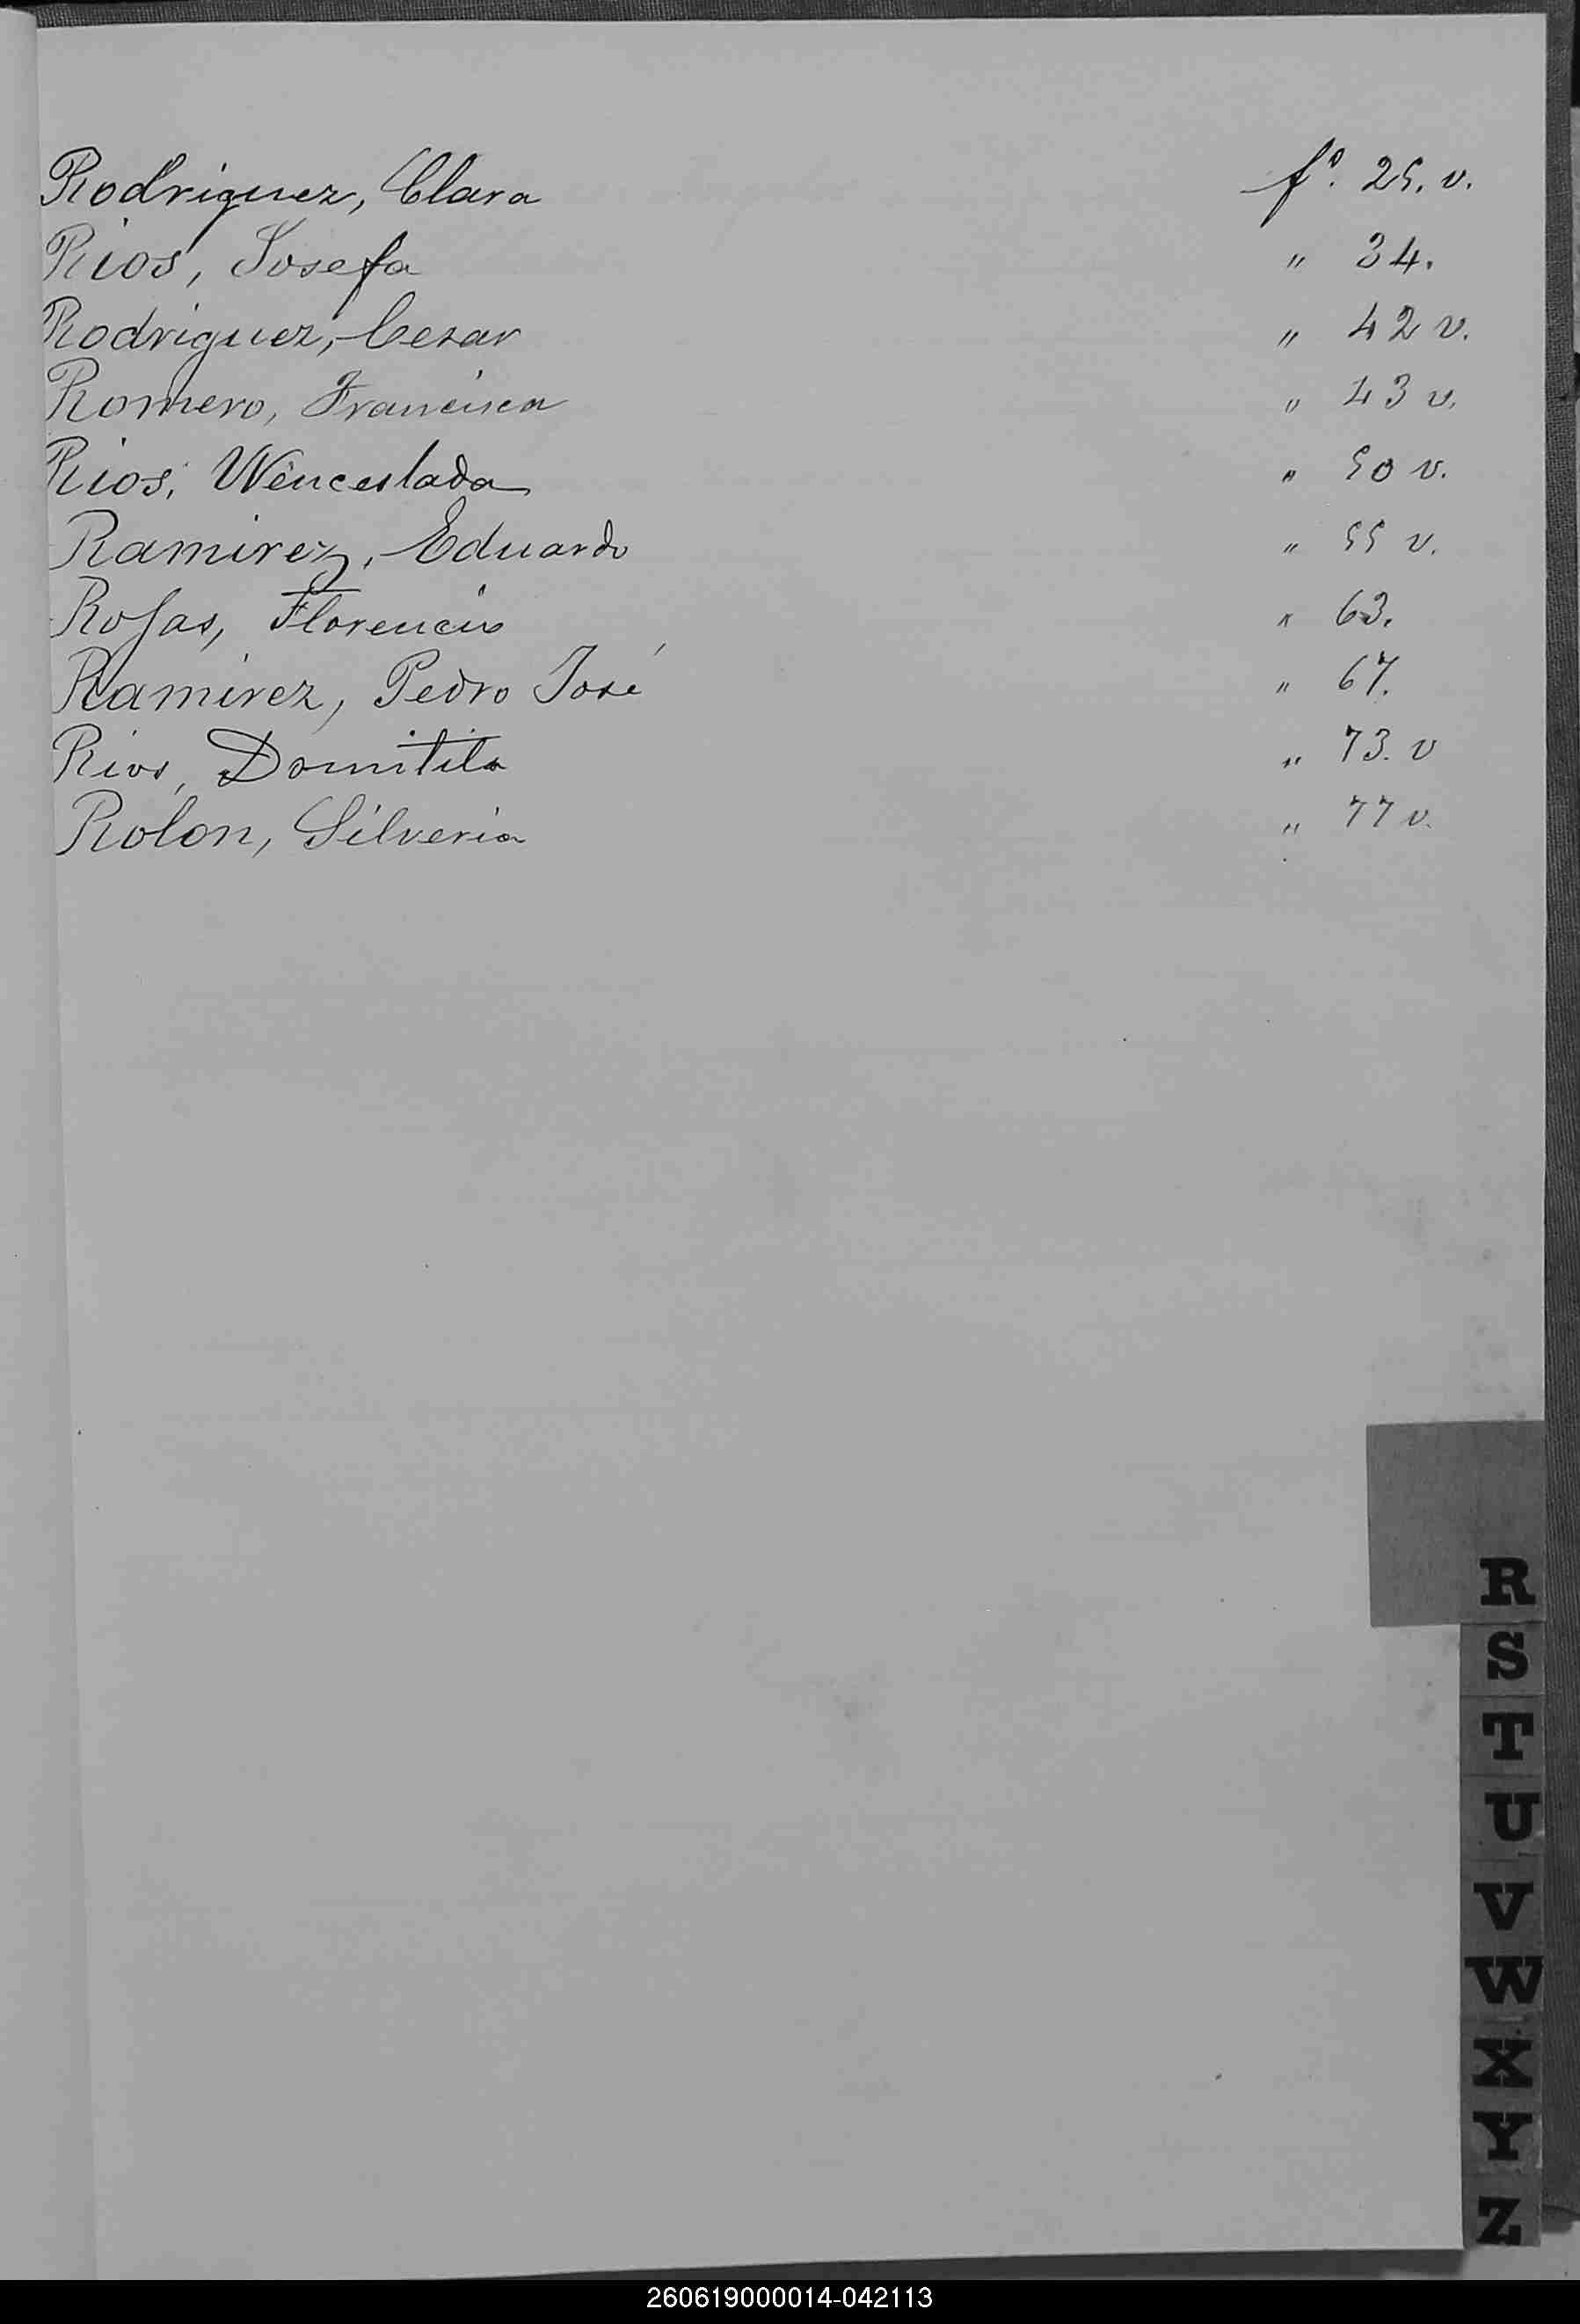 Rodriguez, Clara fº. 25. v.
Rios, Josefa " 34.
Rodriguez, Cezar " 42 v.
Romero, Francisca " 43 v.
Rios, Wenceslada " 50 v.
Ramirez, Eduardo " 55 v.
Rojas, Florencio " 63.
Ramirez, Pedro José " 67.
Rios, Domitila " 73. v
Rolon, Silveria " 77 v.
R
S
T
U
V
W
X
Y
Z
260619000014-042113